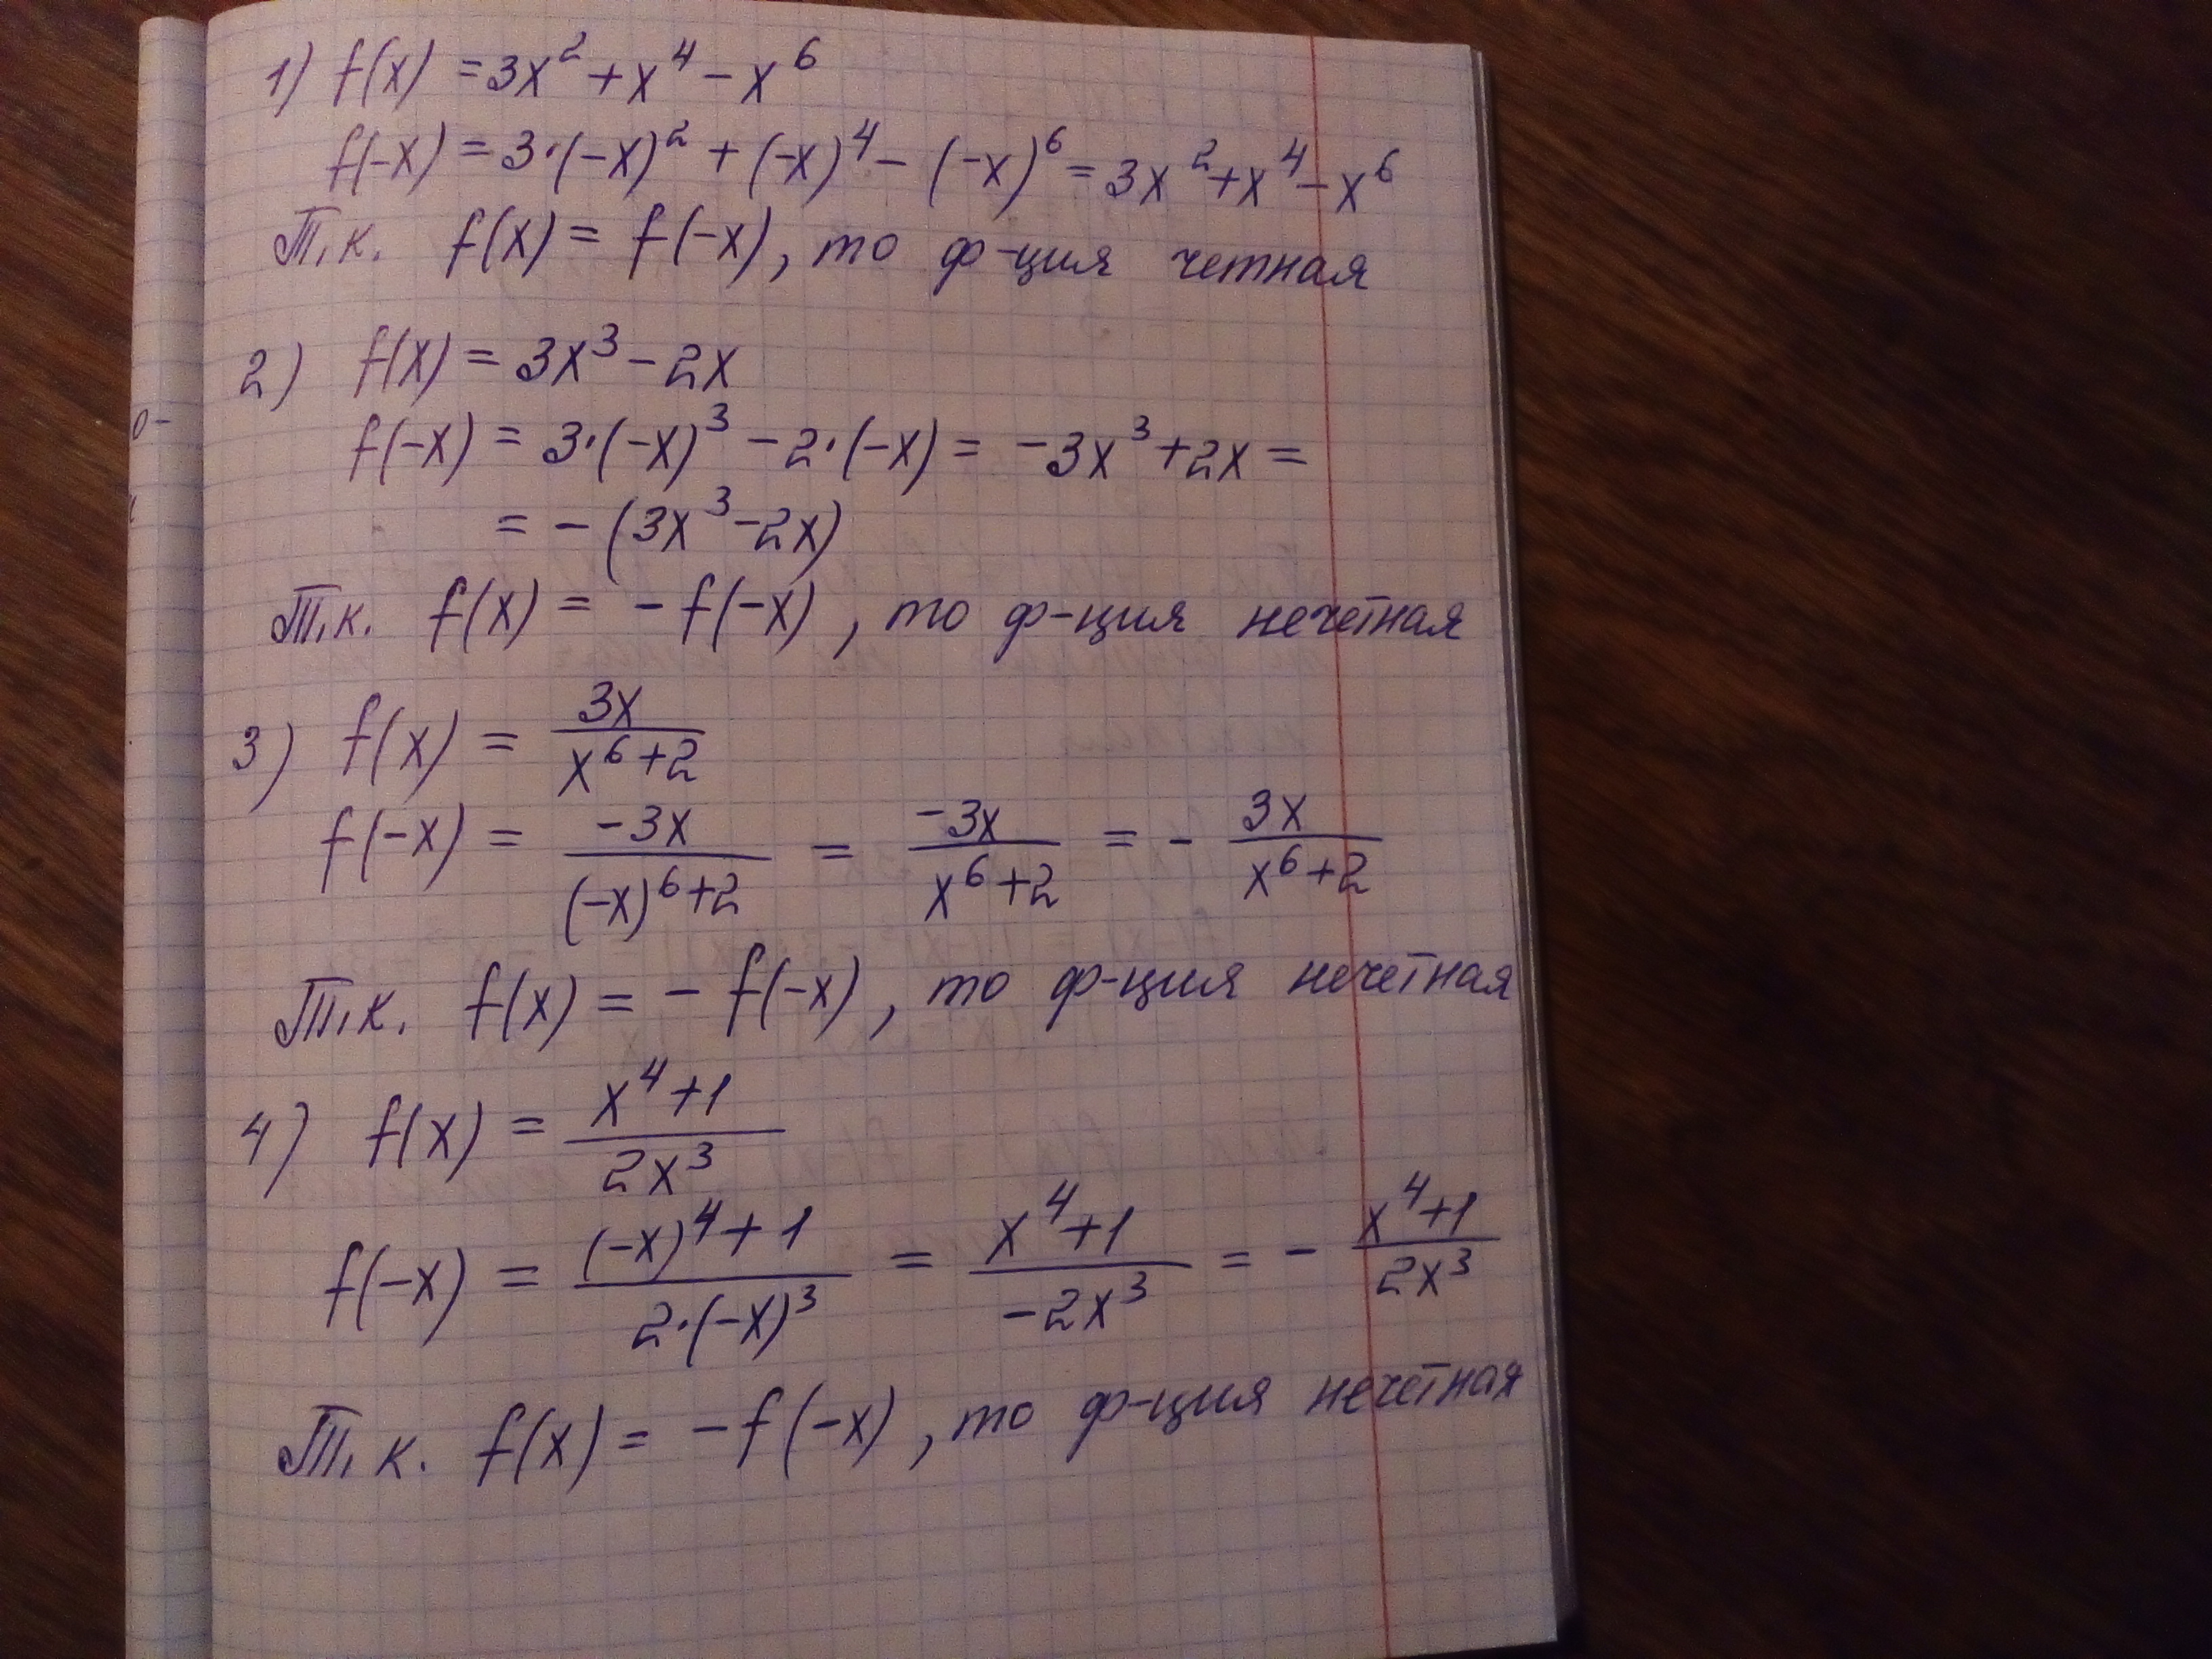 1) f(x) = 3x² + x⁴ - x⁶
f(-x) = 3·(-x)² + (-x)⁴ - (-x)⁶ = 3x² + x⁴ - x⁶
Т.к. f(x) = f(-x), то ф-ция четная
2) f(x) = 3x³ - 2x
f(-x) = 3·(-x)³ - 2·(-x) = -3x³ + 2x =
= -(3x³ - 2x)
Т.к. f(x) = -f(-x), то ф-ция нечетная
3) f(x) = 3x/(x⁶+2)
f(-x) = -3x/((-x)⁶+2) = -3x/(x⁶+2) = - 3x/(x⁶+2)
Т.к. f(x) = -f(-x), то ф-ция нечетная
4) f(x) = (x⁴+1)/(2x³)
f(-x) = ((-x)⁴+1)/(2·(-x)³) = (x⁴+1)/(-2x³) = - (x⁴+1)/(2x³)
Т.к. f(x) = -f(-x), то ф-ция нечетная